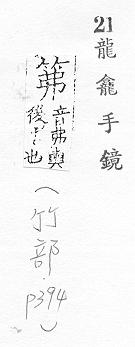 21 龍龕手鏡
笰 音弗輿
後〻也
(竹部.p394)